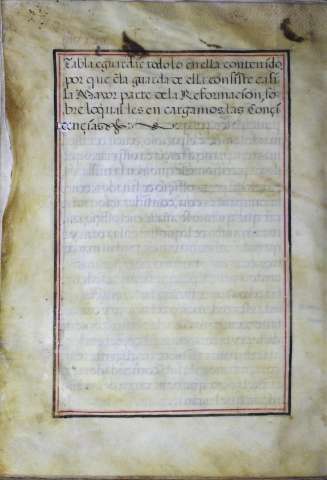 Tabla e guarda de todo lo en ella contenido
por que en la guarda de ello consiste casi
la Mayor parte de la Reformacion, so
bre lo qual les en cargamos las Conçi
ençias